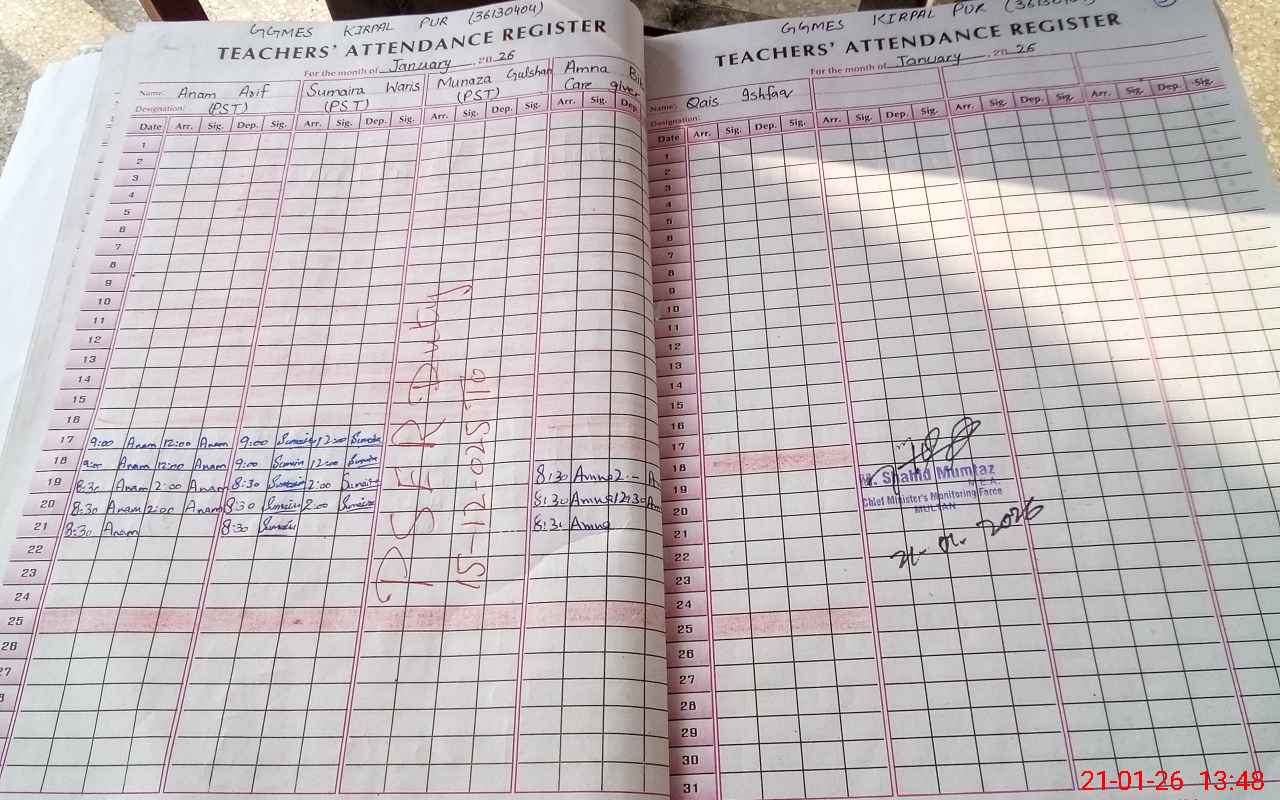 GGMES KIRPAL PUR (36130404)
TEACHERS' ATTENDANCE REGISTER
For the month of January 20 26
Name: Anam Arif Sumaira Waris Munaza Gulshan Amna
Designation: (PST) (PST) (PST) Care giver
Date Arr. Sig. Dep. Sig. Arr. Sig. Dep. Sig. Arr. Sig. Dep. Sig. Arr. Sig. Dep.
1
2
3
4
5
6
7
8
9
10
11
12
13
14
15
16
17 9:00 Anam 12:00 Anam 9:00 Sumaira 12:00 Sumaira
18 9:00 Anam 12:00 Anam 9:00 Sumaira 12:00 Sumaira
19 8:30 Anam 2:00 Anam 8:30 Sumaira 2:00 Sumaira 8:30 Amna 2
20 8:30 Anam 2:00 Anam 8:30 Sumaira 2:00 Sumaira 8:30 Amna 12:30
21 8:30 Anam 8:30 Sumaira 8:30 Amna
22
23
24
25
26
27
PSER Duty
15-12-025
GGMES KIRPAL PUR
TEACHERS' ATTENDANCE REGISTER
For the month of January 20 26
Name: Qais Ishfaq
Designation:
Date Arr. Sig. Dep. Sig. Arr. Sig. Dep. Sig. Arr. Sig. Dep. Sig. Arr. Sig. Dep. Sig.
1
2
3
4
5
6
7
8
9
10
11
12
13
14
15
16
17
18
19
20
21
22
23
24
25
26
27
28
29
30
31
M. Shahid Mumtaz
M.E.A.
Chief Minister's Monitoring Force
MULTAN
21-01-2026
21-01-26 13:48